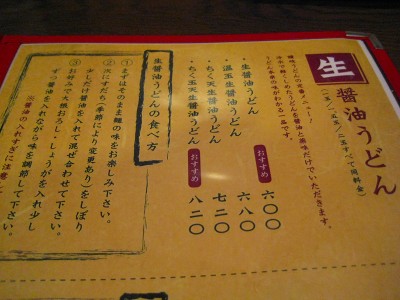 生 醤油うどん
(一玉/一.五玉/二玉すべて同料金)
讃岐うどんの定番メニュー!
冷水で締めしめたうどんを醤油と薬味だけでいただきます。
うどん本来の味がわかる一品です。
・生醤油うどん 六〇〇
・温玉生醤油うどん おすすめ 六八〇
・ちく天生醤油うどん 七二〇
・ちく玉天生醤油うどん おすすめ 八二〇
生醤油うどんの食べ方
①まずはそのまま麺の味をお楽しみ下さい。
②次にすだち(季節により変更あり)をしぼり
少しだけ醤油を入れて混ぜ合わせて下さい。
③お好みで大根おろし・しょうがを入れ少し
ずつ醤油を入れながら味を調節して下さい。
※醤油の入れすぎには注意して